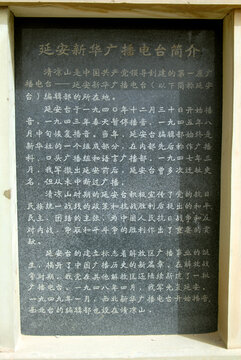 延安新华广播电台简介
清凉山是中国共产党领导创建的第一座广
播电台——延安新华广播电台（以下简称延安
台）编辑部的所在地。
延安台于一九四〇年十二月三十日开始播
音，一九四三年春天暂停播音，一九四五年八
月中旬恢复播音。当年，延安台编辑部始终是
新华社的一个组成部分，在内部先后称作广播
科、口头广播组和语言广播部。一九四七年三
月，我军撤出延安前后，延安台曾多次迁址更
名，但从未中断过广播。
清凉山时期的延安台积极宣传了党的抗日
民族统一战线的政策和抗战胜利后提出的和平
民主、团结的主张，为中国人民的抗日战争和反
对内战、争取和平的斗争作出了重要的贡
献。
延安台的建立标志着解放区广播事业的诞
生，揭开了中国广播历史的新篇章。在解放战
争时期，我党在其他解放区陆续新建了一批
广播电台。一九四八年四月，我军光复延安。
一九四九年一月，西北新华广播电台开始播音，
西北台的编辑部也设在清凉山。